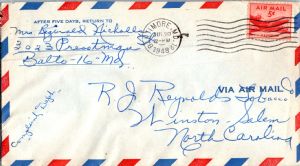 AFTER FIVE DAYS, RETURN TO
Mrs Reginald Nicholls
1023 Prestman
Balto-16-Md.
BALTIMORE, MD.
1948
AIR MAIL
5¢
VIA AIR MAIL
R. J. Reynolds Tobacco
Winston-Salem
North Carolina